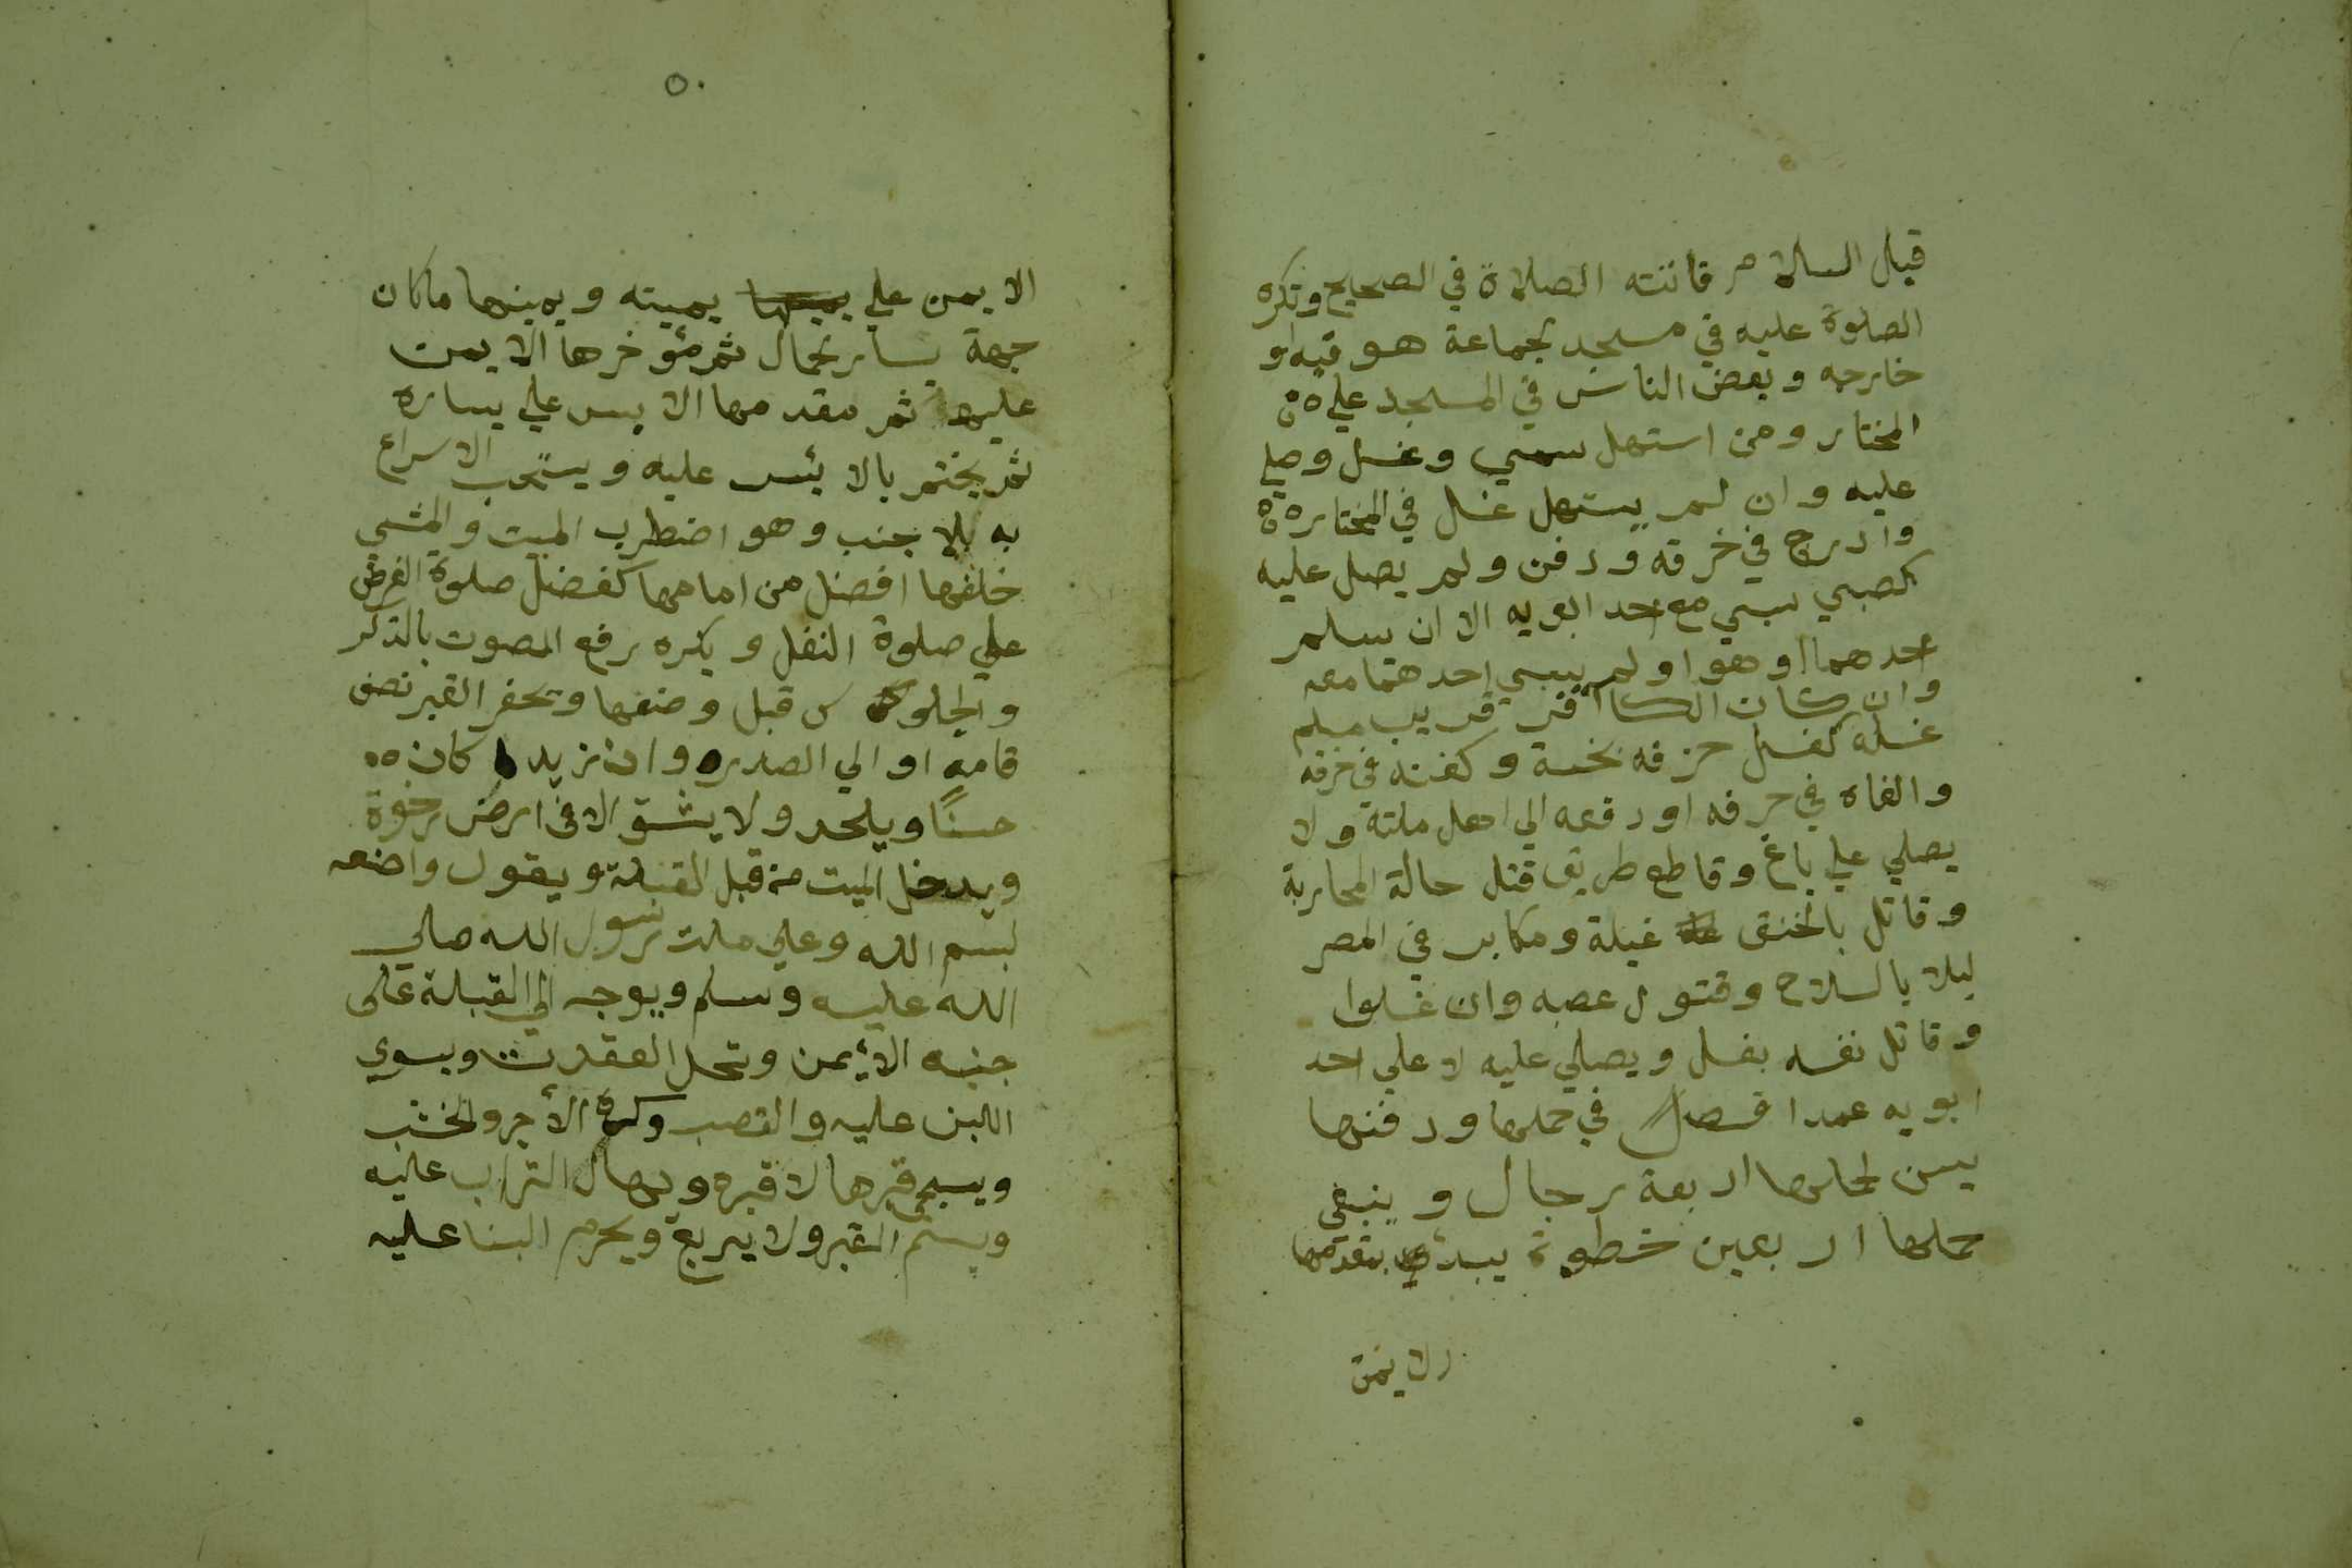 قبل السلام فاتته الصلاة في الصحيح وتكره
الصلوة عليه في مسجد جماعة هو فيه او
خارجه وبعض الناس في المسجد علي
المختار ومن استهل سمي وغسل وصلي
عليه وان لم يستهل غسل في المختار
وادرج في خرقه ودفن ولم يصل عليه
كصبي سبي مع احد ابويه الا ان يسلم
احدهما او هو او لم يسبي احدهما معه
وان كان الكافر قريب مسلم
غسله كغسل خرقه نجسة وكفنه في خرقه
والقاه في حرفه او دفعه الي اهل ملته ولا
يصلي علي باغ وقاطع طريق قتل حالة المحاربة
وقاتل بالخنق غيلة ومكابر في المصر
ليلا بالسلاح وقتول عصبه وان غسلوا
وقاتل نفسه يغسل ويصلي عليه لا علي احد
ابويه عمدا فصل في حملها ودفنها
يسن لحملها اربعة رجال وينبغي
حملها اربعين خطوة يبدئ بمقدمها
الايمن
٥٠
الايمن علي يمينه ويمينها ماكان
جهة يسار الحمال ثم مؤخرها الايمن
عليه ثم مقدمها الايسر علي يساره
ثم يختم بالايسر عليه ويستحب الاسراع
به بلا جنب وهو اضطرب الميت والمشي
خلفها افضل من امامها كفضل صلوة الفرض
علي صلوة النفل ويكره رفع الصوت بالذكر
والجلوس قبل وضعها ويحفر القبر نصف
قامه او الي الصدر وان زيد كان
حسنًا ويلحد ولا يشق الا في ارض رخوة
ويدخل الميت من قبل القبلة ويقول واضعه
بسم الله وعلي ملت رسول الله صلي
الله عليه وسلم ويوجه الي القبلة على
جنبه الأيمن وتحل العقدت ويسوي
اللبن عليه والقصب وكره الأجر والخشب
ويسجى قبرها لا قبره ويهال التراب عليه
ويسنم القبر ولا يربع ويحرم البنا عليه